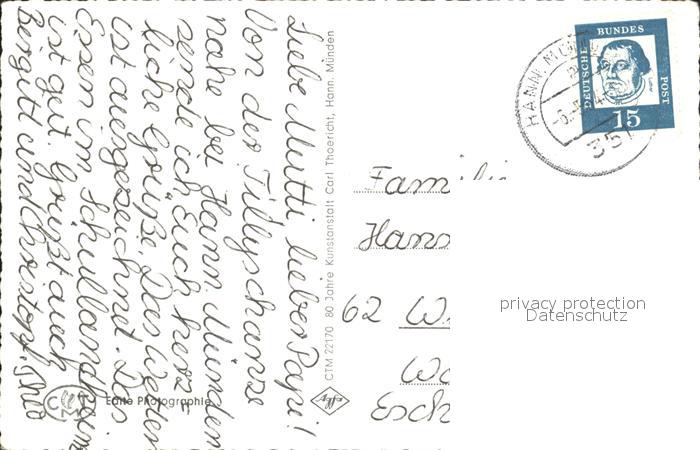 Liebe Mutti, lieber Papi!
Von der Tillyschanze
nahe bei Hann. Münden
sende ich Euch herz=
liche Grüße. Das Wetter
ist ausgezeichnet. Das
Essen im Schullandheim
ist gut. Grüßt auch
Bergitt und Christoph.
CTM 22170 80 Jahre Kunstanstalt Carl Thoericht, Hann. Münden
Echte Photographie
Agfa
DEUTSCHE BUNDES POST
15
HANN. MÜNDEN
351
Familie
Hans
62 W.
Esch
privacy protection
Datenschutz